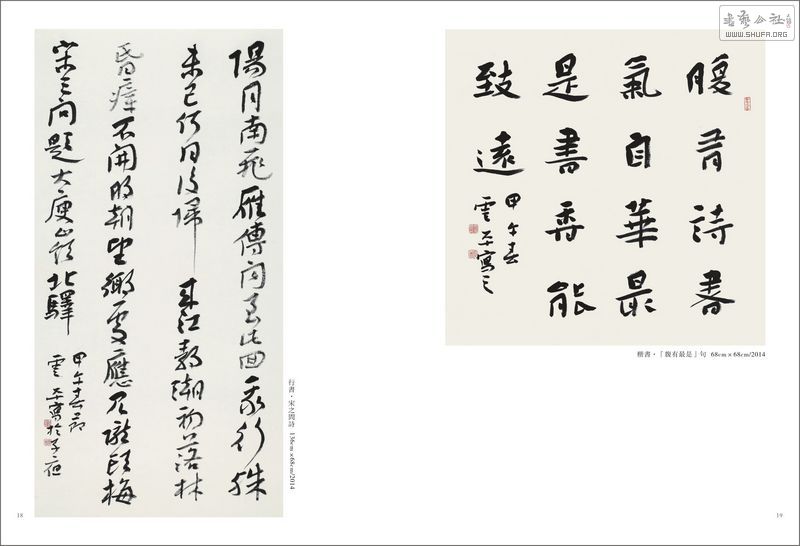 陽月南飛雁傳聞至此回我行殊
未已何日復歸來江靜潮初落林
昏瘴不開明朝望鄉處應見隴頭梅
宋之問題大庾嶺北驛
甲午春節
雲平寫於子夜
行書・宋之問詩 136cm×68cm/2014
18
書藝公社
WWW.SHUFA.ORG
腹有詩書
氣自華最
是書香能
致遠
甲午春
雲平寫之
楷書・「腹有最是」句 68cm×68cm/2014
19